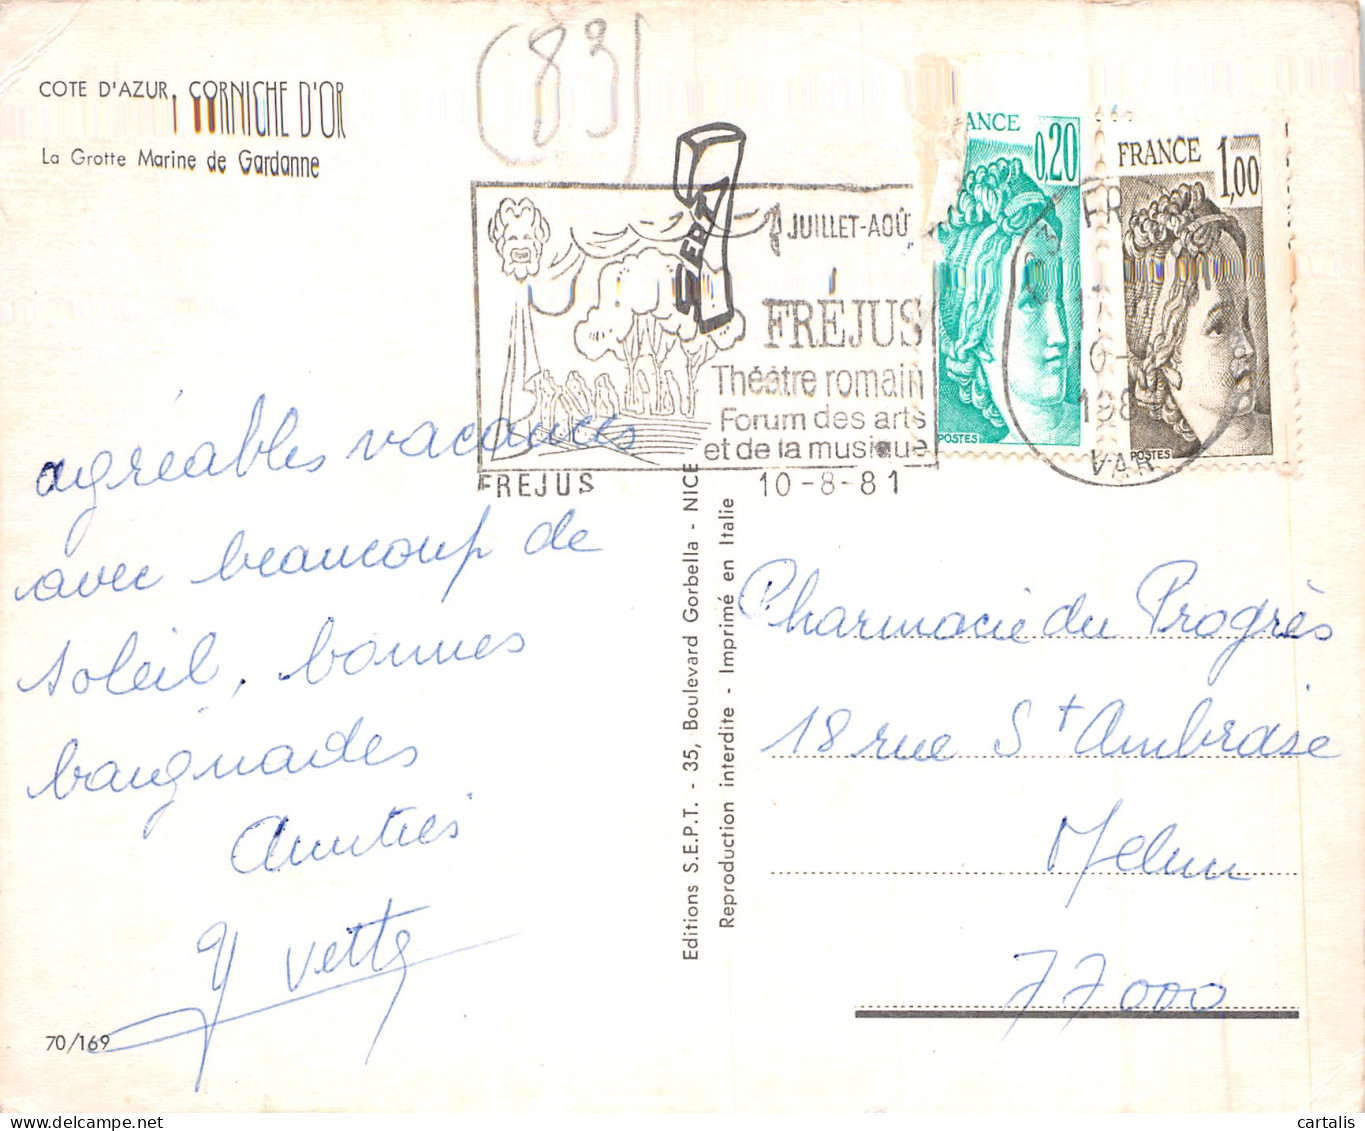 (83)
COTE D'AZUR, CORNICHE D'OR
La Grotte Marine de Gardanne
JUILLET-AOÛ
FRÉJUS
Théâtre romain
Forum des arts
et de la musique
FREJUS
10-8-81
SEPT
ANCE
0,20
POSTES
FRANCE
1,00
POSTES
FR
10-
198
VAR
agréables vacances
avec beaucoup de
soleil, bonnes
baignades
Amitiés
Yvette
70/169
Editions S.E.P.T. - 35, Boulevard Gorbella - NICE
Reproduction interdite - Imprimé en Italie
Pharmacie du Progrès
18 rue St Ambroise
Melun
77000
cartalis